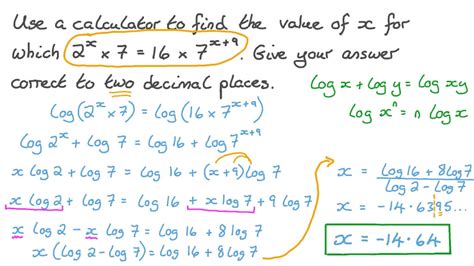 Use a calculator to find the value of x for
which 2^x × 7 = 16 × 7^{x+9}. Give your answer
correct to two decimal places.
log(2^x × 7) = log(16 × 7^{x+9})
log 2^x + log 7 = log 16 + log 7^{x+9}
x log 2 + log 7 = log 16 + (x+9) log 7
x log 2 + log 7 = log 16 + x log 7 + 9 log 7
x log 2 - x log 7 = log 16 + 8 log 7
x (log 2 - log 7) = log 16 + 8 log 7
log x + log y = log xy
log x^n = n log x
x = (log 16 + 8 log 7) / (log 2 - log 7)
x = -14.6395...
x = -14.64